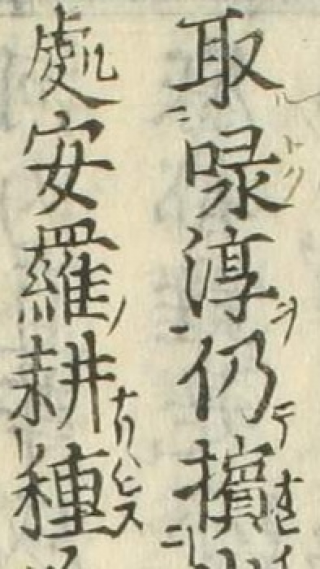 取㖨淳仍擯
處安羅耕種